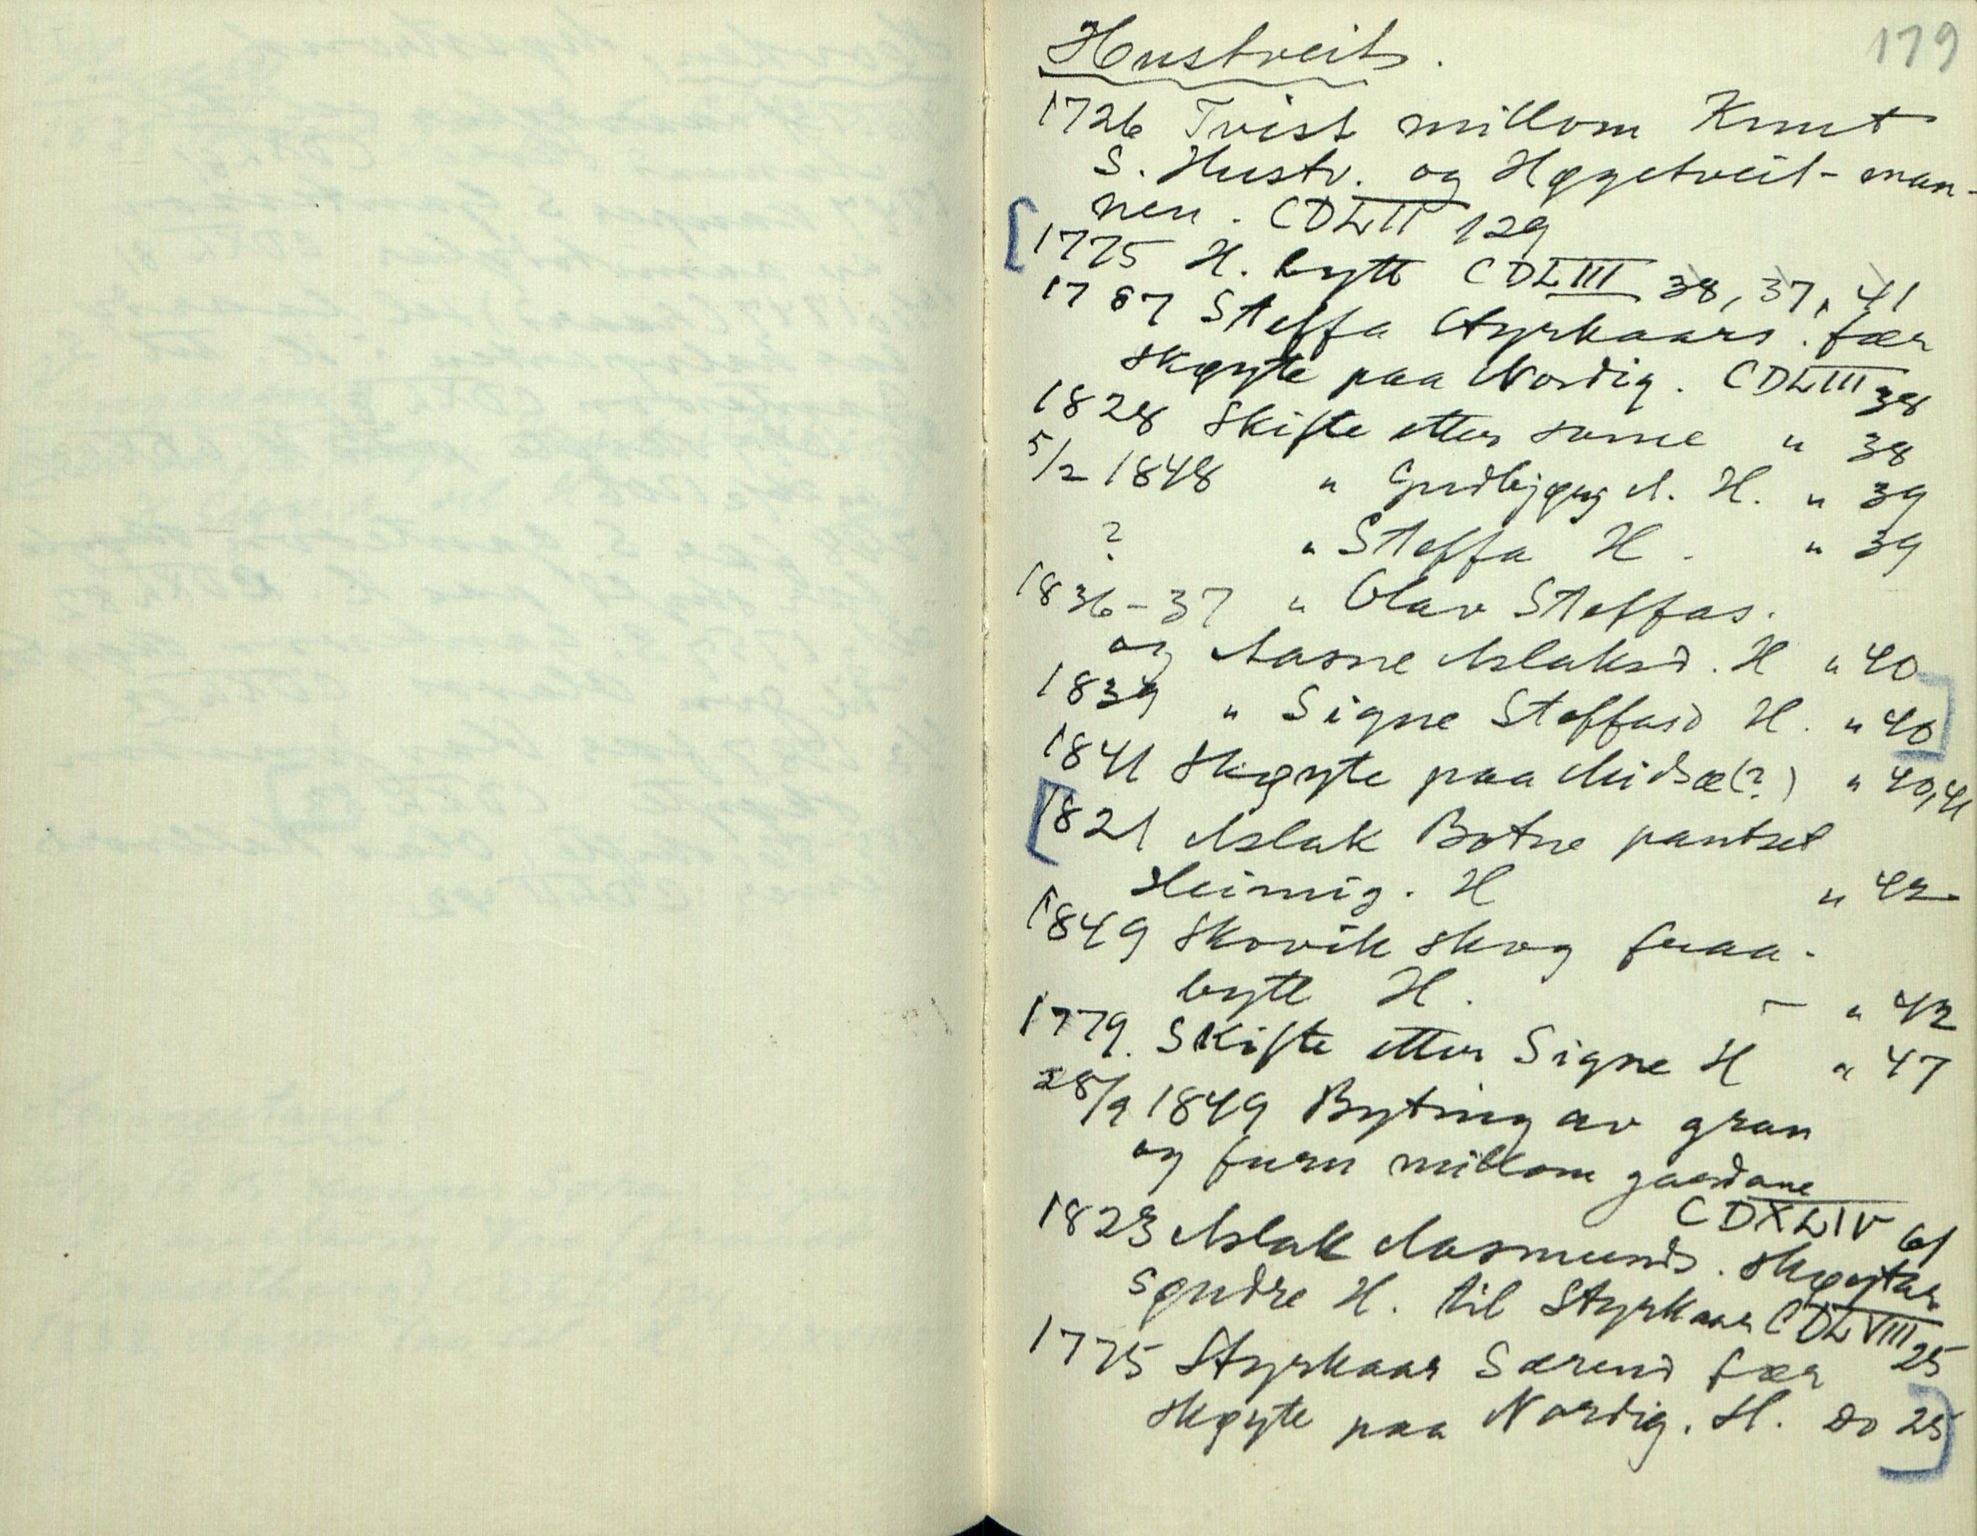 179
Hustveit.
1726 Tvist millom Knut
S. Hustv. og Høgetveit-man-
nen. CDLII 129
1775 H. bytt CDLIII 38, 37, 41
1787 Steffa Styrkaars. fær
skøyte paa Nordig. CDLIII 38
1828 Skifte etter same " 38
5/2 1848 " Gudbjørg A. H. " 39
? " Steffa H. " 39
1836-37 " Olav Steffas.
og Aasne Aslaksd. H " 40
1839 " Signe Steffasd H. " 40
1841 Skøyte paa Midsæ(?) " 40,41
1821 Aslak Botne pantset
Heimig. H " 42
1849 Skovik skog fraa-
bytt H. — " 42
1779. Skifte etter Signe H " 47
28/9 1849 Byting av gran
og furu millom gardane
CDXLIV 61
1823 Aslak Aasmunds. skøytar
søndre H. til Styrkaar CDLVIII 25
1775 Styrkaar Særend fær
skøyte paa Nordig. H. Do 25